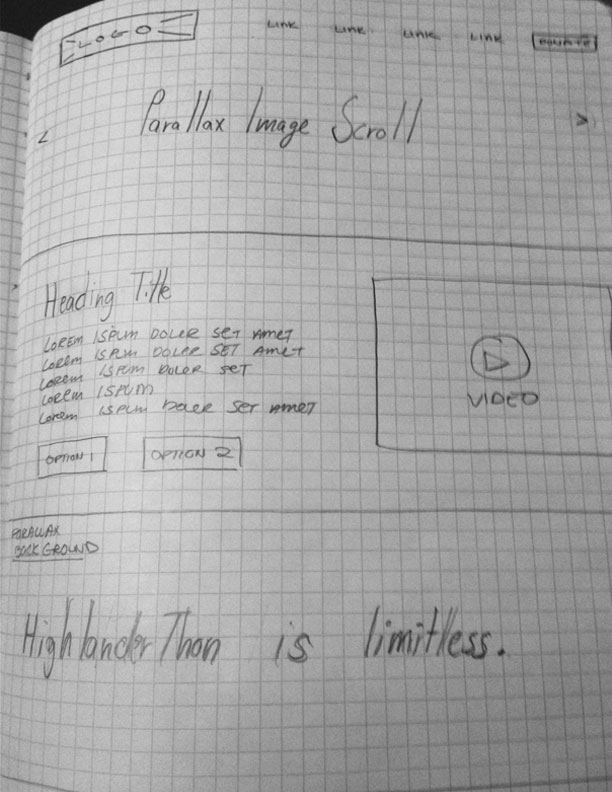 LOGO
LINK LINK LINK LINK DONATE
< Parallax Image Scroll >
Heading Title
LOREM ISPUM DOLER SET AMET
LOREM ISPUM DOLER SET AMET
LOREM ISPUM DOLER SET
LOREM ISPUM
LOREM ISPUM DOLER SET AMET
OPTION 1 OPTION 2
VIDEO
PARALLAX
BACKGROUND
HighlanderThon is limitless.